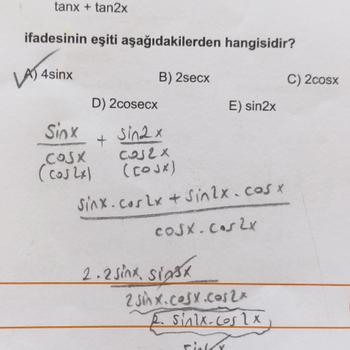 tanx + tan2x
ifadesinin eşiti aşağıdakilerden hangisidir?
A) 4sinx B) 2secx C) 2cosx
D) 2cosecx E) sin2x
sinx + sin2x
cosx cos2x
(cos2x) (cosx)
sinx.cos2x + sin2x.cosx
cosx.cos2x
2.2sinx.sin3x
2sinx.cosx.cos2x
2.sin2x.cos2x